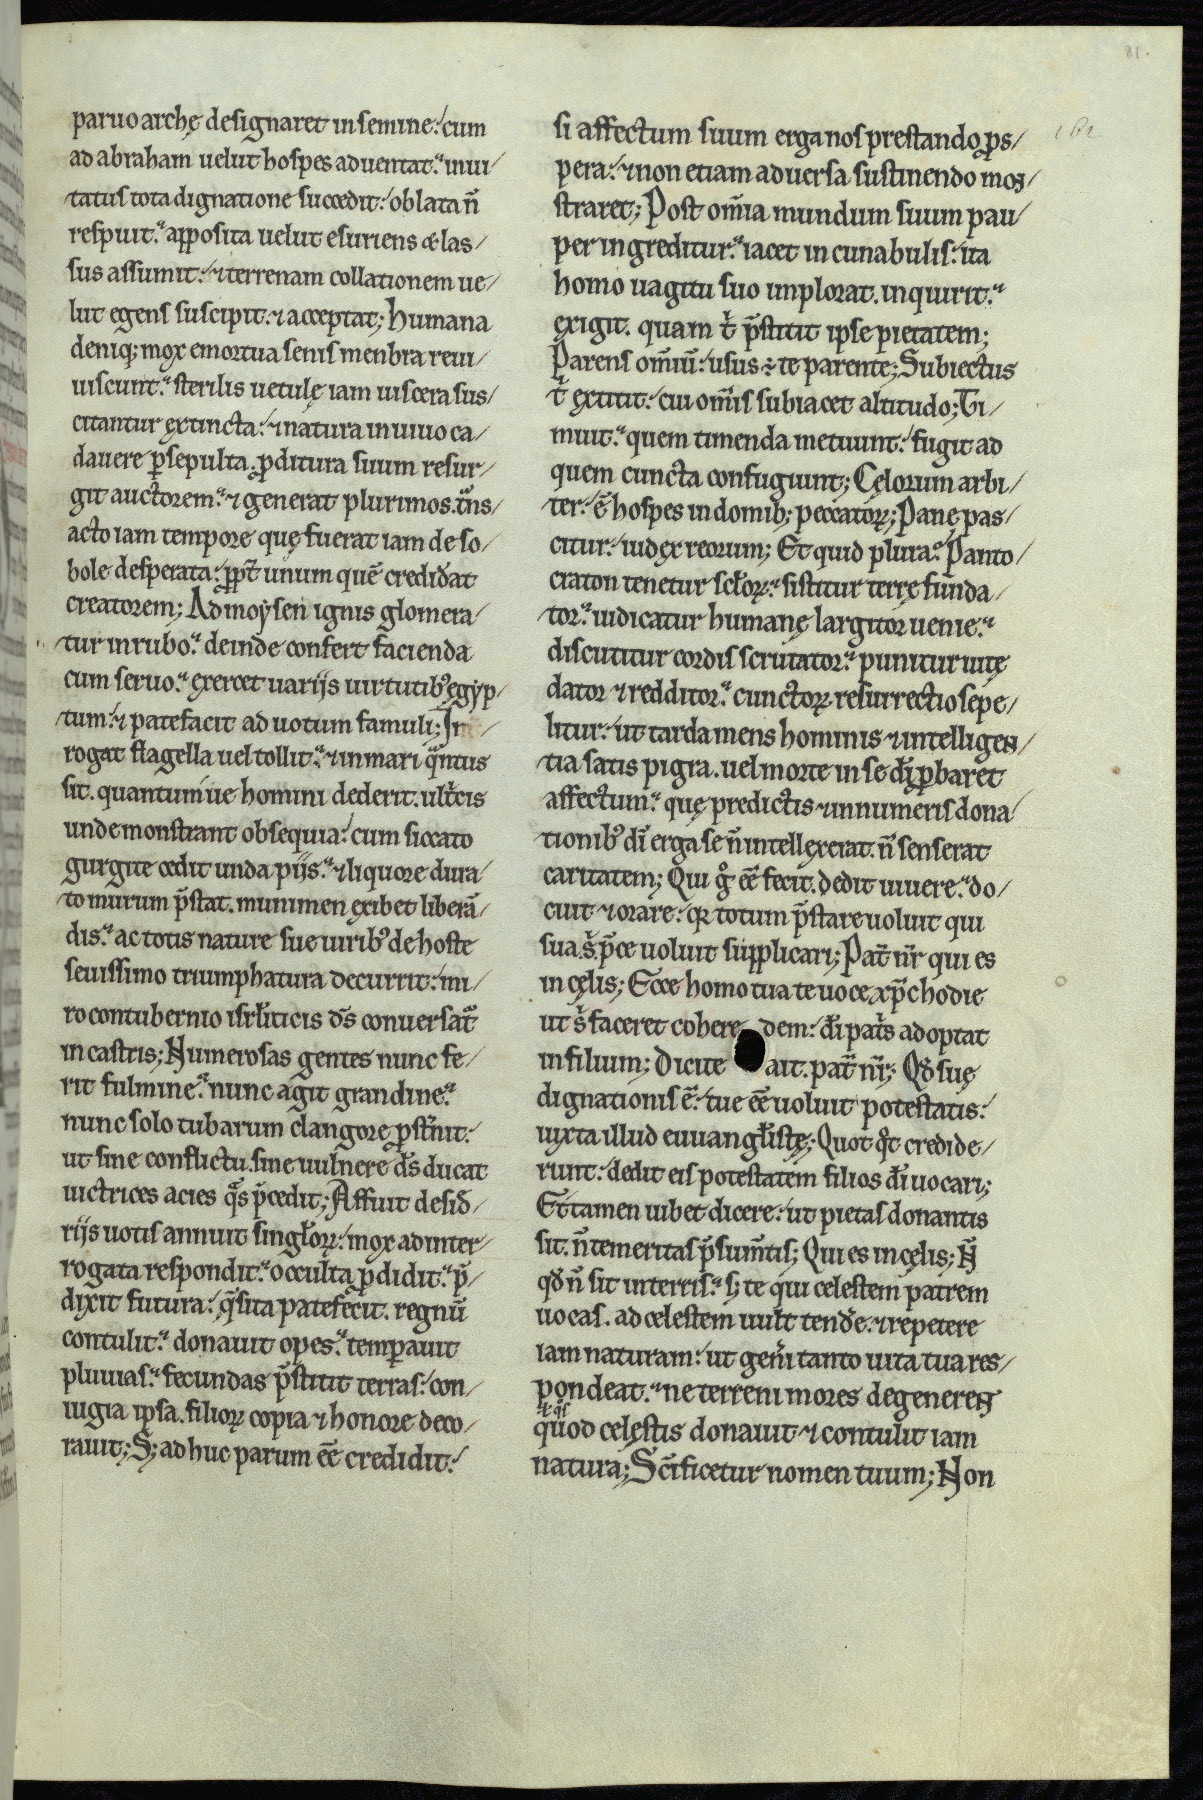 81.
162
paruo archę designaret in semine: cum
ad abraham uelut hospes aduentat. inui/
tatus tota dignatione succedit: oblata n̄
respuit. apposita uelut esuriens & las/
sus assumit: ⁊ terrenam collationem ue/
lut egens suscipit. ⁊ acceptat; Humana
deniq; mox emortua senis menbra reui/
uiscunt. sterilis uetulę iam uiscera sus/
citantur extincta: ⁊ natura in uiuo ca/
dauere p̱sepulta. p̱ditura suum resur/
git auctorem. ⁊ generat plurimos. t̄ns/
acto iam tempore quę fuerat iam de so/
bole desperata: pp̄t unum quē credid̄at
creatorem; Ad moysen ignis glomera/
tur in rubo. deinde confert facienda
cum seruo. exercet uarijs uirtutib; ęgyp/
tum: ⁊ patefacit ad uotum famuli; Ir/
rogat flagella uel tollit. ⁊ in mari q̄ntus
sit. quantum ue homini dederit. ult̄cis
unde monstrant obsequia: cum siccato
gurgite cedit unda pijs. ⁊ liquore dura/
to murum p̄stat. munimen exibet liberā/
dis. ac totis nature sue uirib; de hoste
seuissimo triumphatura decurrit: mi/
ro contubernio isrl̄iticis d̄s conuersat̄
in castris; Numerosas gentes nunc fe/
rit fulmine. nunc agit grandine.
nunc solo tubarum clangore p̱st̄nit:
ut sine conflictu. sine uulnere d̄s ducat
uictrices acies q̄s p̄cedit; Affuit desid̄/
rijs uotis annuit singl̄oꝝ: mox ad inter/
rogata respondit. occulta p̱didit. p̄/
dixit futura: q̄sita patefecit. regnū
contulit. donauit opes. temp̱auit
pluuias. fecundas p̄stitit terras: con/
iugia ipsa. filioꝝ copia ⁊ honore deco/
rauit; S; ad huc parum eē credidit:
si affectum suum erga nos prestando p̱s/
pera: ⁊ non etiam aduersa sustinendo mon/
straret; Post om̄ia mundum suum pau/
per ingreditur. iacet in cunabulis: ita
homo uagitu suo implorat. inquirit.
exigit. quam t̄ p̄stitit ipse pietatem;
Parens om̄iū: usus ÷ te parente; Subiectus
t̄ extitit: cui om̄is subiacet altitudo; Ti/
muit. quem timenda metuunt: fugit ad
quem cuncta confugiunt; Cęlorum arbi/
ter: ē hospes in domib; peccatoꝝ; Pane pas/
citur: iudex reorum; Et quid plura? Panto/
craton tenetur scl̄oꝝ. sistitur terrę funda/
tor. iudicatur humanę largitor uenie.
discutitur cordis scrutator. punitur uitę
dator ⁊ redditor. cunctoꝝ resurrectio sepe/
litur: ut tarda mens hominis ⁊ intelligen/
tia satis pigra. uel morte in se d̄i p̱baret
affectum. quę predictis ⁊ innumeris dona/
tionib; d̄i erga se n̄ intellexerat. n̄ senserat
caritatem; Qui g̊ eē fecit. dedit uiuere. do/
cuit ⁊ orare: qꝛ totum p̄stare uoluit qui
sua s̄ p̄ce uoluit supplicari; Pat̄ nr̄ qui es
in cęlis; Ecce homo tua te uoce xp̄c hodie
ut s̄ faceret cohere dem: d̄i pat̄s adoptat
in filium; Dicite ait. pat̄ nr̄; Qd̄ suę
dignationis ē: tue eē uoluit potestatis:
iuxta illud euuangl̄istę; Quot q̊t credide/
runt: dedit eis potestatem filios d̄i uocari;
Et tamen iubet dicere: ut pietas donantis
sit. n̄ temeritas p̄sum̄tis; Qui es in cęlis; N̄
qd̄ n̄ sit in terris. s; te qui celestem patrem
uocas. ad celestem uult tend̄e. ⁊ repetere
iam naturam: ut gen̄i tanto uita tua res/
pondeat. ne terreni mores degenerent
quod celęstis donauit ⁊ contulit iam
natura; Sc̄ificetur nomen tuum; Non